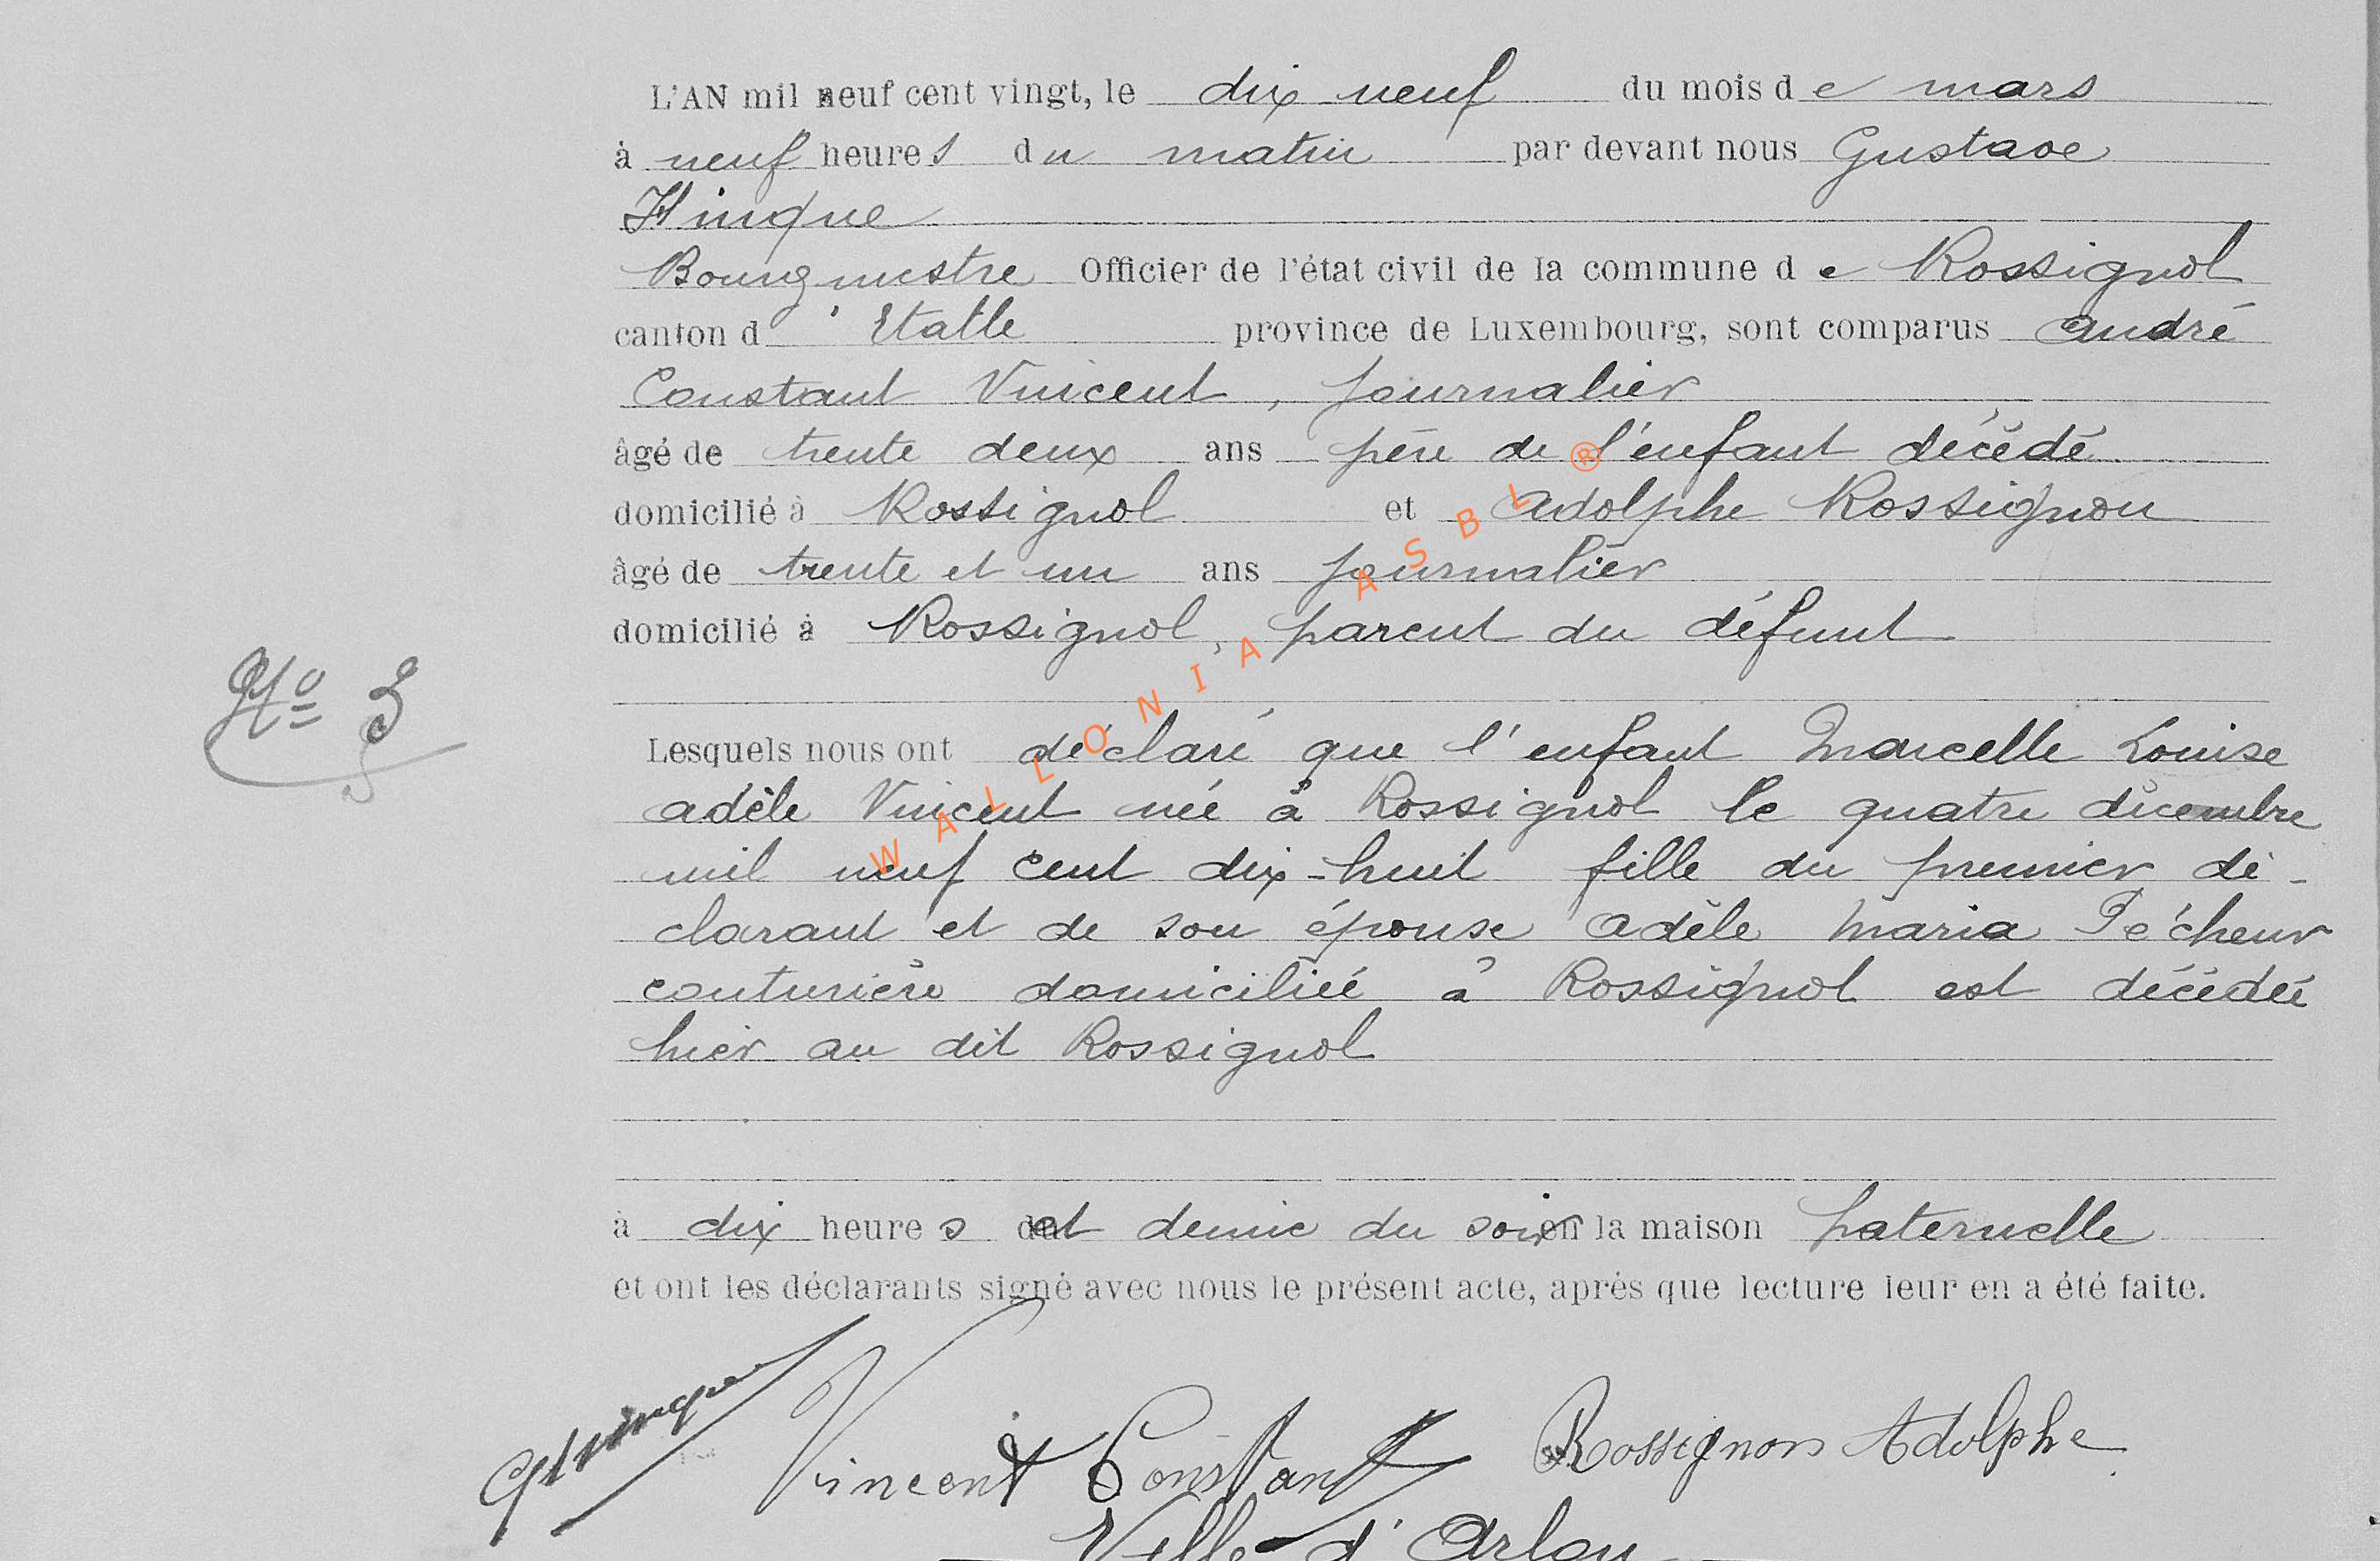 L'AN mil neuf cent vingt, le dix neuf du mois de mars
à neuf heures du matin par devant nous Gustave
Hinque
Bourgmestre Officier de l'état civil de la commune de Rossignol
canton d'Etalle province de Luxembourg, sont comparus André
Constant Vincent, journalier
âgé de trente deux ans père de l'enfant décédé
domicilié à Rossignol et Adolphe Rossignon
âgé de trente et un ans journalier
domicilié à Rossignol, parent du défunt
No 3
Lesquels nous ont déclaré que l'enfant Marcelle Louise
Adèle Vincent née à Rossignol le quatre décembre
mil neuf cent dix-huit fille du premier dé-
clarant et de son épouse Adèle Maria Pécheur
couturière domiciliée à Rossignol est décédée
hier au dit Rossignol
à dix heures et demie du soir en la maison paternelle
et ont les déclarants signé avec nous le présent acte, après que lecture leur en a été faite.
GHinque Vincent Constant Rossignon Adolphe
Ville d'Arlon
WALLONIA ASBL ®